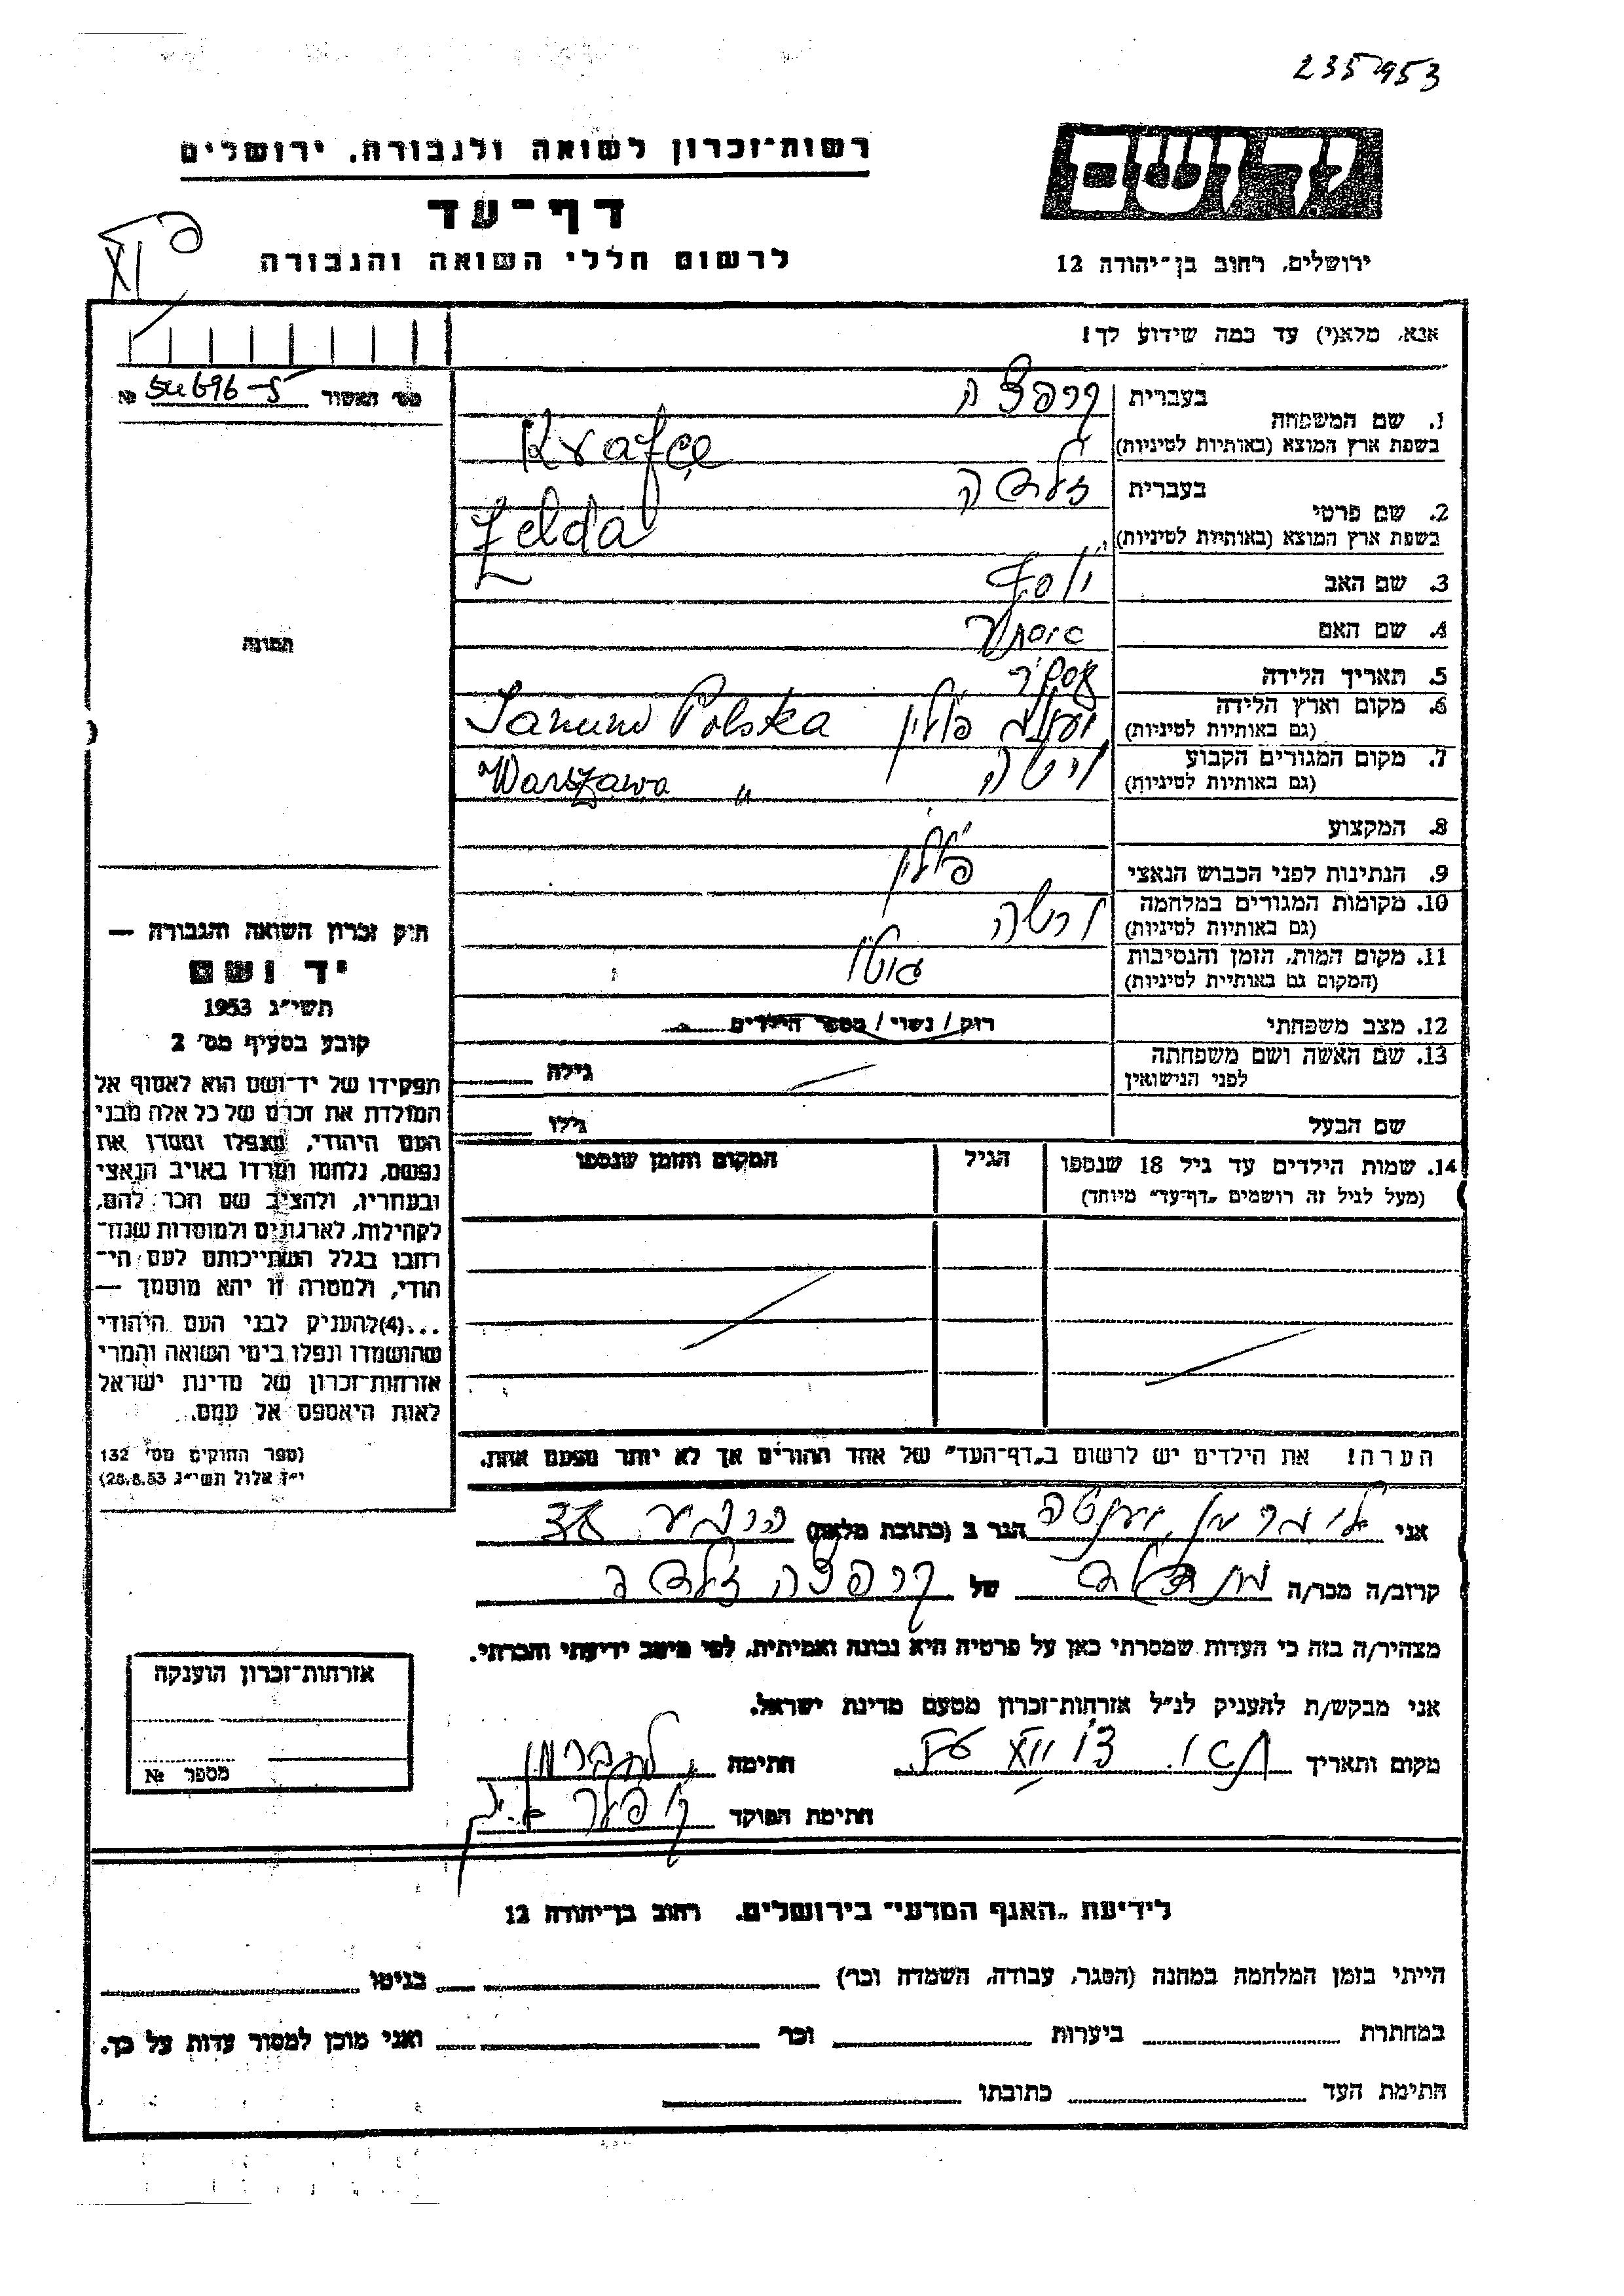 235953
רשות־זכרון לשואה ולגבורה. ירושלים
ידושם
דף־עד
לרשום חללי השואה והגבורה
ירושלים, רחוב בן־יהודה 12
אנא, מלא(י) עד כמה שידוע לך!
מס' האשור 54696-5 №
1. שם המשפחה
בעברית קרפצה
בשפת ארץ המוצא (באותיות לטיניות) Krafçe
2. שם פרטי
בעברית זלדה
בשפת ארץ המוצא (באותיות לטיניות) Zelda
3. שם האב יוסף
4. שם האם אסתר
תמונה
5. תאריך הלידה
6. מקום וארץ הלידה
(גם באותיות לטיניות) פולין Polska
7. מקום המגורים הקבוע
(גם באותיות לטיניות) ורשה Warszawa "
8. המקצוע
9. הנתינות לפני הכבוש הנאצי פולין
10. מקומות המגורים במלחמה
(גם באותיות לטיניות) ורשה
11. מקום המות, הזמן והנסיבות
(המקום גם באותיית לטיניות) גיטו
12. מצב משפחתי רוק / נשוי / מספר הילדים
13. שם האשה ושם משפחתה
לפני הנישואין גילה
שם הבעל גילו
14. שמות הילדים עד גיל 18 שנספו
(מעל לגיל זה רושמים „דף־עד" מיוחד)
הגיל
המקום והזמן שנספו
חוק זכרון השואה והגבורה —
יד ושם
תשי״ג 1953
קובע בסעיף מס' 2
תפקידו של יד־ושם הוא לאסוף אל
המולדת את זכרם של כל אלה מבני
העם היהודי, שנפלו ומסרו את
נפשם, נלחמו ומרדו באויב הנאצי
ובעוזריו, ולהציב שם וזכר להם,
לקהילות, לארגונים ולמוסדות שנח־
רחבו בגלל השתייכותם לעם הי־
הודי, ולמטרה זו יהא מוסמך —
...(4)להעניק לבני העם היהודי
שהושמדו ונפלו בימי השואה והמרי
אזרחות־זכרון של מדינת ישראל
לאות היאספם אל עמם.
(ספר החוקים מס' 132
י״ז אלול תשי״ג 28.8.53)
הערה! את הילדים יש לרשום ב„דף־העד" של אחד ההורים אך לא יותר מפעם אחת.
אני הגר ב (כתובת מלאה)
קרוב/ה מכר/ה של קרפצה זלדה
מצהיר/ה בזה כי העדות שמסרתי כאן על פרטיה היא נכונה ואמיתית, לפי מיטב ידיעתי והכרתי.
אני מבקש/ת להעניק לנ״ל אזרחות־זכרון מטעם מדינת ישראל.
מקום ותאריך חתימה
חתימת הפוקד
אזרחות־זכרון הוענקה
מספר №
לידיעת „האגף המדעי" בירושלים. רחוב בן־יהודה 12
הייתי בזמן המלחמה במחנה (הסגר, עבודה, השמדה וכר') בגיטו
במחתרת ביערות וכר' ואני מוכן למסור עדות על כך.
חתימת העד כתובתו